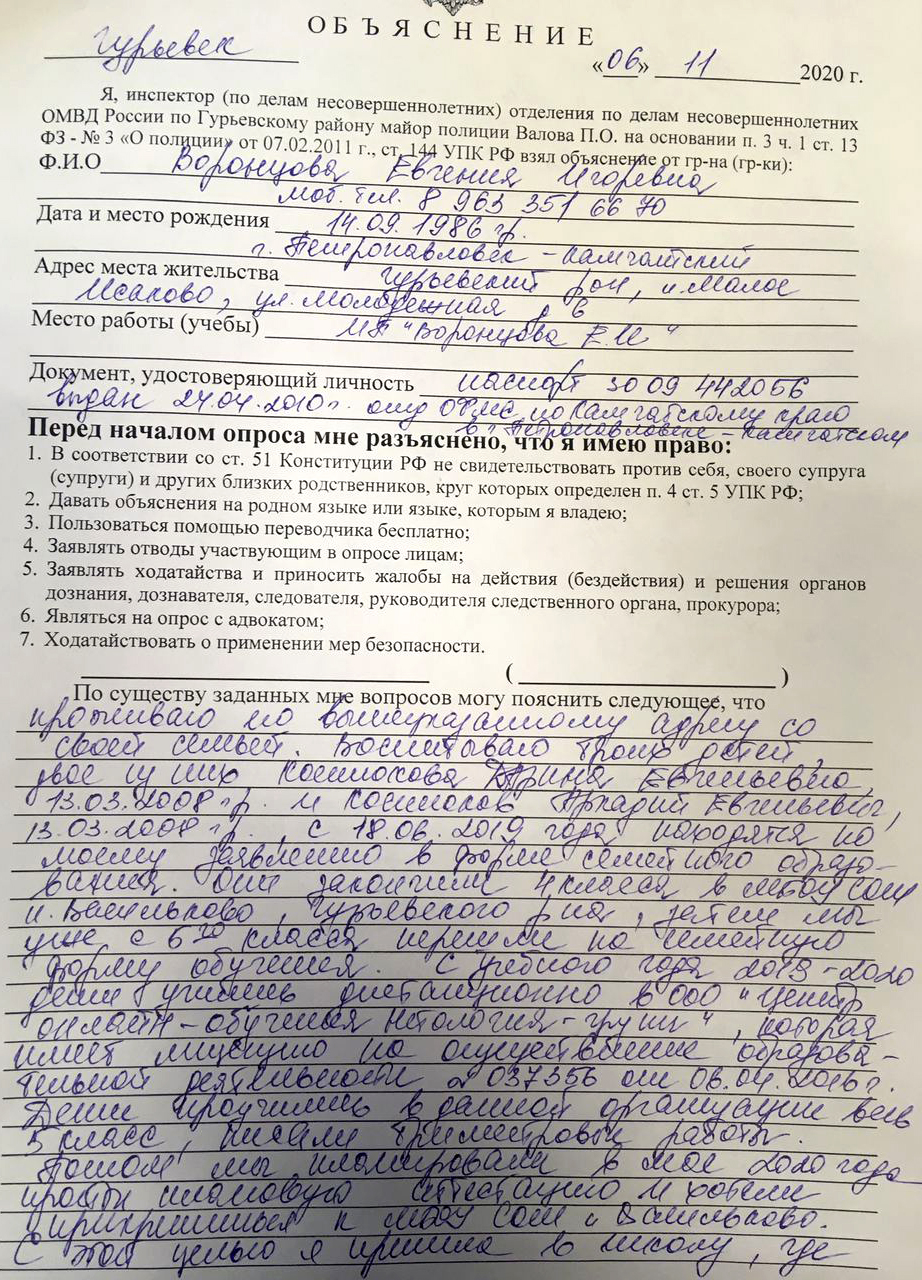 ОБЪЯСНЕНИЕ
Гурьевск
«06» 11 2020 г.
Я, инспектор (по делам несовершеннолетних) отделения по делам несовершеннолетних
ОМВД России по Гурьевскому району майор полиции Валова П.О. на основании п. 3 ч. 1 ст. 13
ФЗ - № 3 «О полиции» от 07.02.2011 г., ст. 144 УПК РФ взял объяснение от гр-на (гр-ки):
Ф.И.О Воронцова Евгения Игоревна
моб. тел. 8 963 351 66 70
Дата и место рождения 14.09.1986 г.р.
г. Петропавловск - Камчатский
Адрес места жительства Гурьевский р-он, п. Малое
Исаково, ул. Молодежная д 6
Место работы (учебы) ИП "Воронцова Е.И"
Документ, удостоверяющий личность паспорт 30 09 442056
выдан 24.04.2010 г. отд ОФМС по Камчатскому краю
в г. Петропавловске - Камчатском
Перед началом опроса мне разъяснено, что я имею право:
1. В соответствии со ст. 51 Конституции РФ не свидетельствовать против себя, своего супруга
(супруги) и других близких родственников, круг которых определен п. 4 ст. 5 УПК РФ;
2. Давать объяснения на родном языке или языке, которым я владею;
3. Пользоваться помощью переводчика бесплатно;
4. Заявлять отводы участвующим в опросе лицам;
5. Заявлять ходатайства и приносить жалобы на действия (бездействия) и решения органов
дознания, дознавателя, следователя, руководителя следственного органа, прокурора;
6. Являться на опрос с адвокатом;
7. Ходатайствовать о применении мер безопасности.
( )
По существу заданных мне вопросов могу пояснить следующее, что
проживаю по вышеуказанному адресу со
своей семьей. Воспитываю троих детей,
двое из них Арина Евгеньевна,
13.03.2008 г.р. и Аркадий Евгеньевич,
13.03.2008 г.р., с 18.06.2019 года находятся по
моему заявлению в форме семейного образо-
вания. Они закончили 4 класса в МБОУ СОШ
п. Васильково, Гурьевского р-на, затем мы
уже с 5го класса перешли на семейную
форму обучения. С учебного года 2019-2020
дети учились дистанционно в ООО "Центр
онлайн-обучения Нетология-групп", которая
имеет лицензию на осуществление образова-
тельной деятельности № 037356 от 06.04.2016 г.
Дети проучились в данной организации весь
5 класс, писали триместровые работы.
Потом мы планировали в мае 2020 года
пройти плановую аттестацию и хотели
прикрепиться к МБОУ СОШ п Васильково.
С этой целью я пришла в школу, где